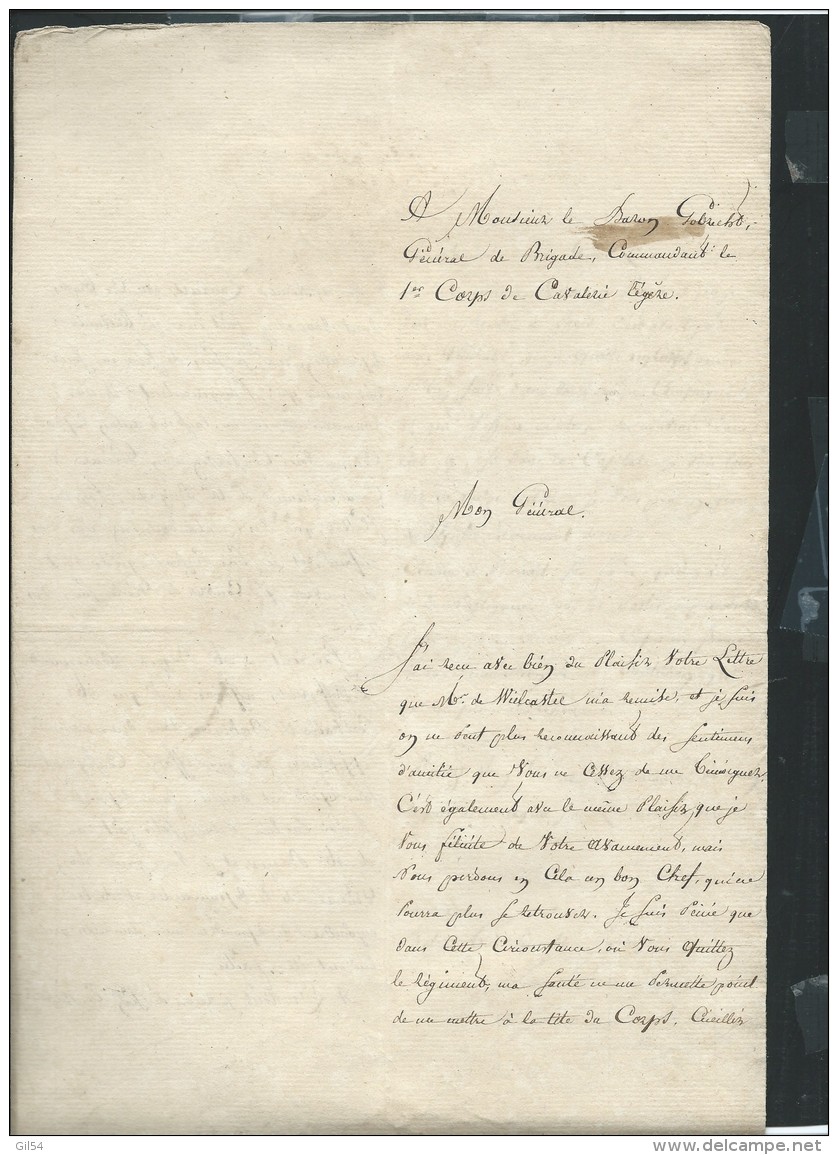 A Monsieur le Baron Gobrecht,
Général de Brigade, Commandant le
1er Corps de Cavalerie légère.
Mon Général.
J'ai recu avec bien du Plaisir Votre Lettre
que Mr. de Wielcastel m'a remise, et je suis
on ne peut plus reconnaissant des sentimens
d'amitié que Vous ne cessez de me témoigner.
C'est également avec le même Plaisir que je
Vous félicite de Votre avancement, mais
Nous perdons en Cela un bon Chef, qui ne
Pourra plus se retrouver. Je suis Peiné que
dans Cette Circonstance, où Vous quittez
le Régiment, ma santé ne me Permette point
de me mettre à la tête du Corps.
Gil54
www.delcampe.net